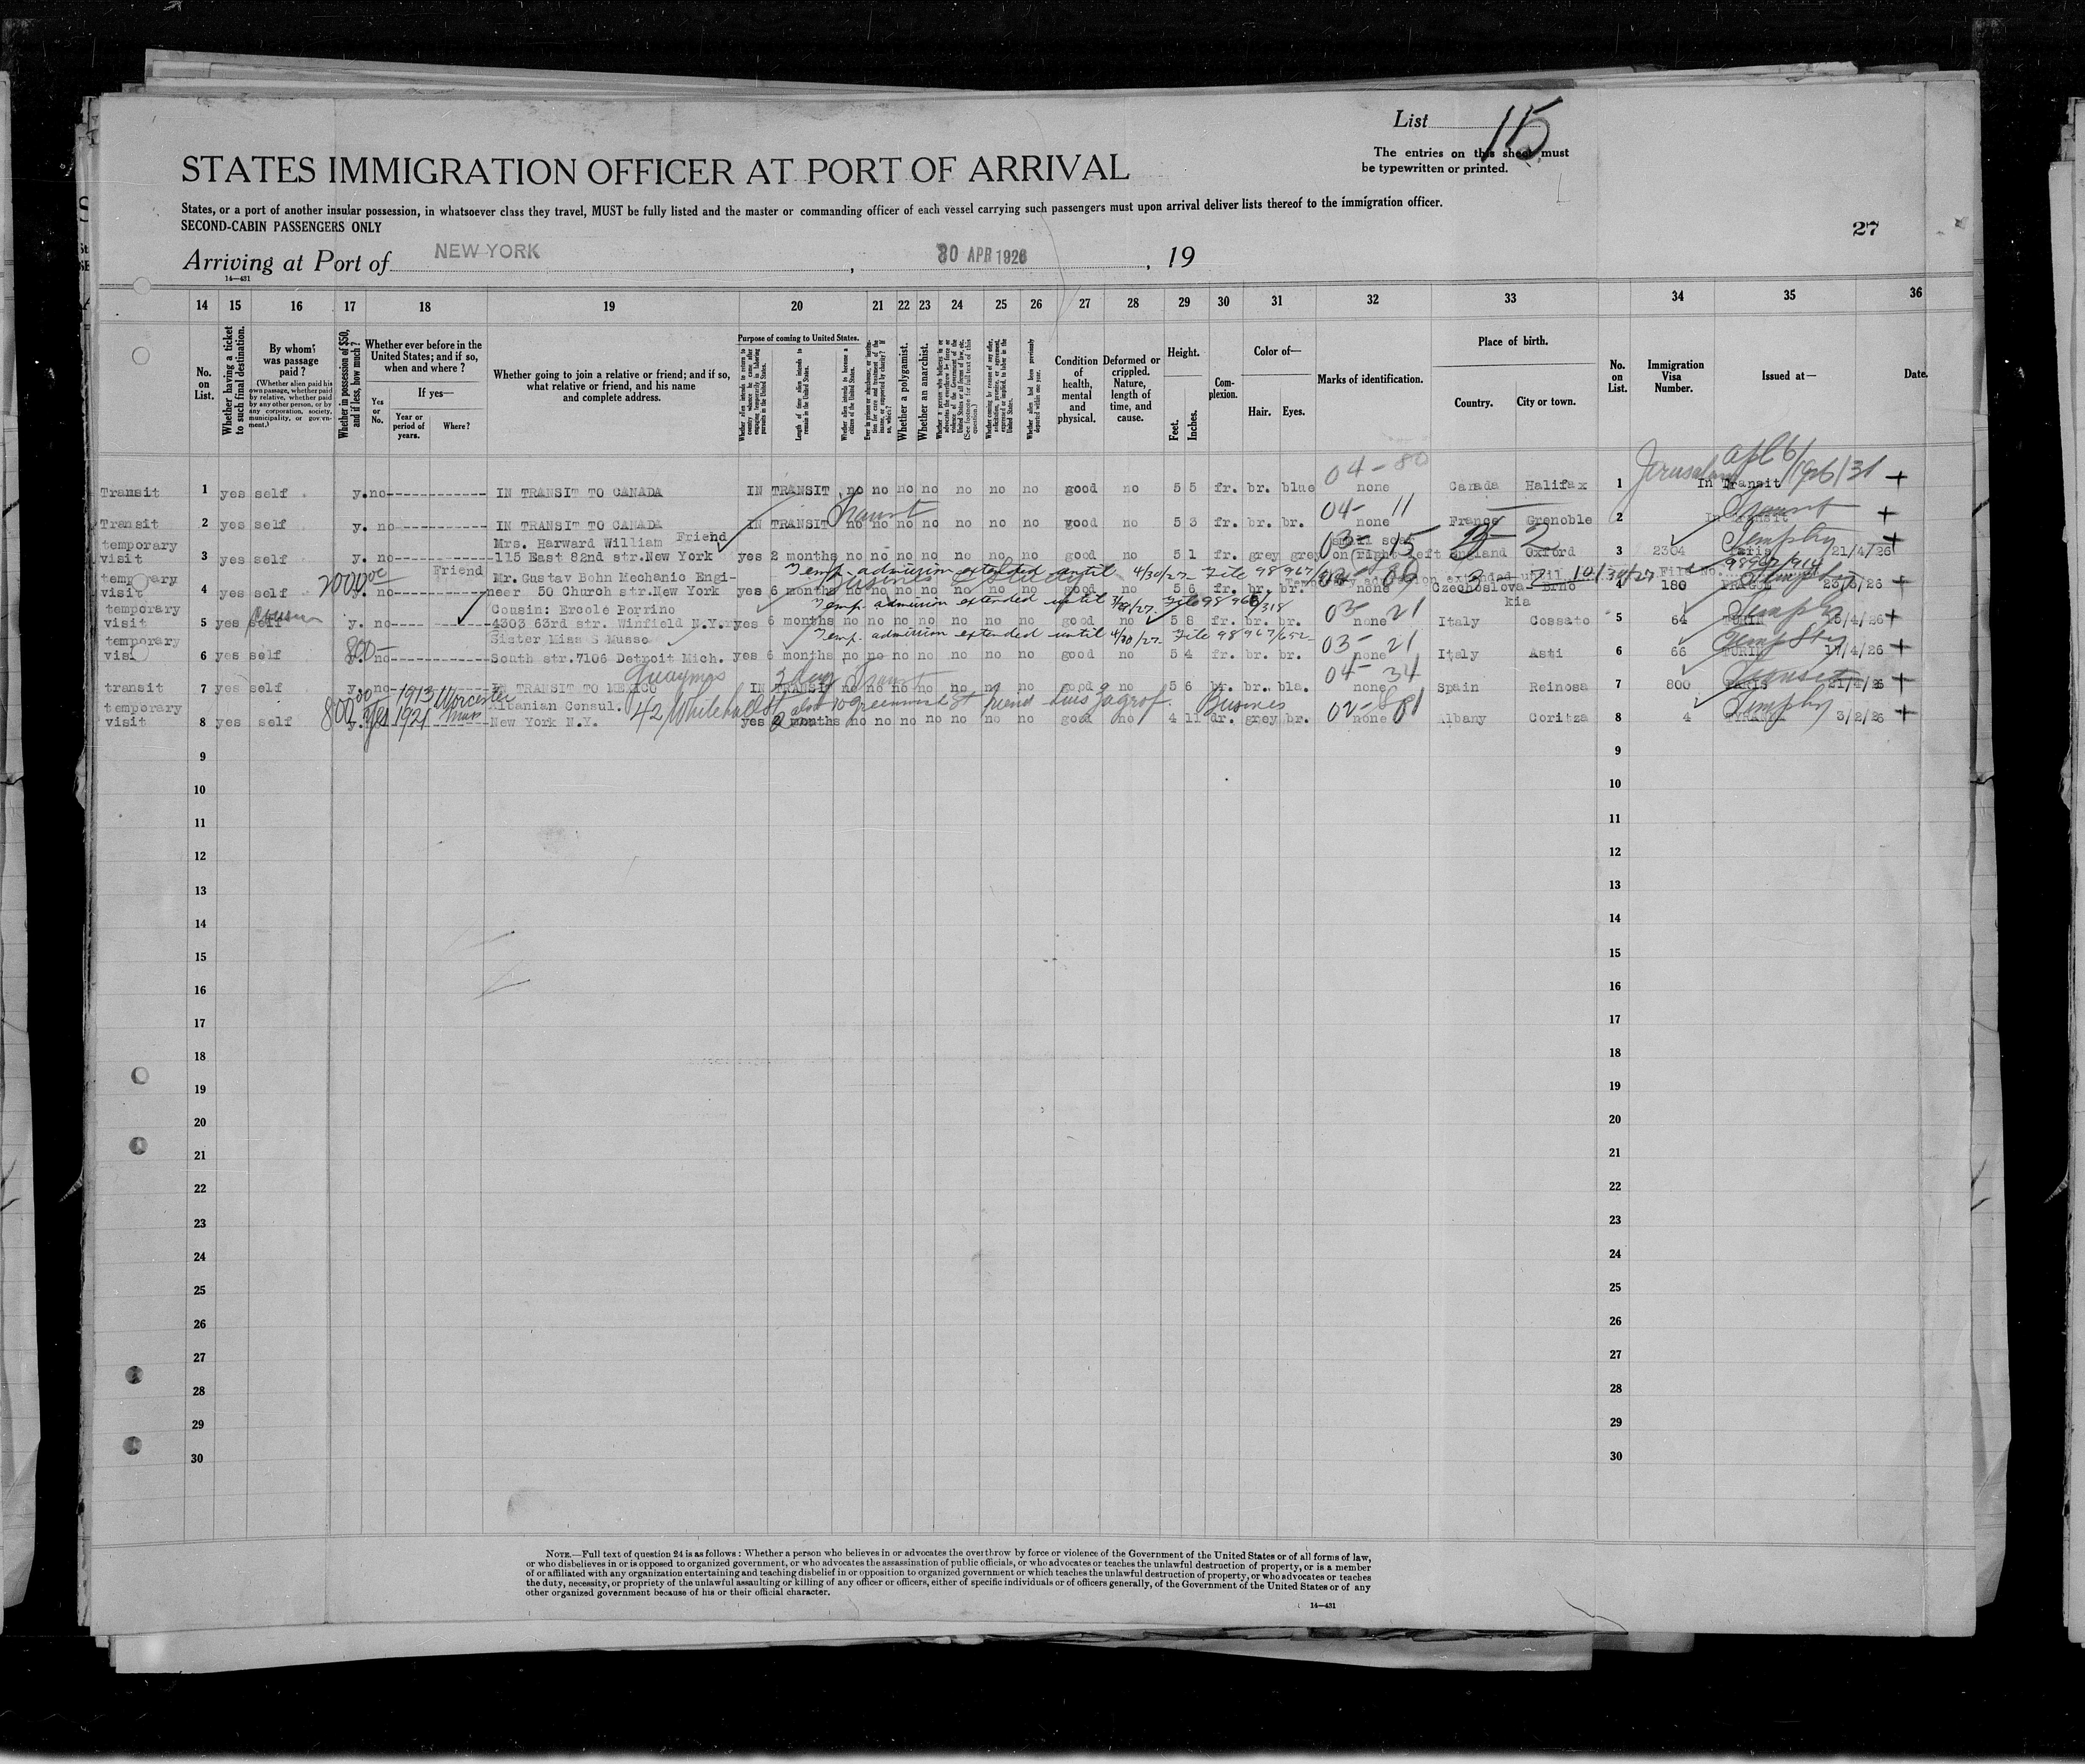 List 115
The entries on this sheet must
be typewritten or printed.
STATES IMMIGRATION OFFICER AT PORT OF ARRIVAL
States, or a port of another insular possession, in whatsoever class they travel, MUST be fully listed and the master or commanding officer of each vessel carrying such passengers must upon arrival deliver lists thereof to the immigration officer.
SECOND-CABIN PASSENGERS ONLY
27
Arriving at Port of NEW YORK , 30 APR 1926 , 19
14—431
14 15 16 17 18 19 20 21 22 23 24 25 26 27 28 29 30 31 32 33 34 35 36
No. on List.
Whether having a ticket to such final destination.
By whom was passage paid?
(Whether alien paid his own passage, whether paid by relative, whether paid by any other person, or by any corporation, society, municipality, or government.)
Whether in possession of $50, and if less, how much?
Whether ever before in the United States; and if so, when and where?
Yes or No.
If yes—
Year or period of years.
Where?
Whether going to join a relative or friend; and if so, what relative or friend, and his name and complete address.
Purpose of coming to United States.
Whether alien intends to return to country whence he came after engaging temporarily in laboring pursuits in the United States.
Length of time alien intends to remain in the United States.
Whether alien intends to become a citizen of the United States.
Whether a polygamist.
Whether an anarchist.
Condition of health, mental and physical.
Deformed or crippled. Nature, length of time, and cause.
Height.
Feet. Inches.
Complexion.
Color of—
Hair. Eyes.
Marks of identification.
Place of birth.
Country. City or town.
No. on List.
Immigration Visa Number.
Issued at—
Date.
04-80 Jerusalem Apl 6/1926/31
Transit 1 yes self y. no IN TRANSIT TO CANADA IN TRANSIT no no no no no no no good no 5 5 fr. br. blue none Canada Halifax 1 In Transit +
Transit 04- 11 Transit
Transit 2 yes self y. no IN TRANSIT TO CANADA IN TRANSIT no no no no no no no good no 5 3 fr. br. br. none France Grenoble 2 In Transit +
temporary Mrs. Harward William Friend 03- 15
visit 3 yes self y. no 115 East 82nd str.New York yes 2 months no no no no no no no good no 5 1 fr. grey grey on right left England Oxford 3 2304 Paris 21/4/26 +
Temp. admission extended until 4/30/27- File 98967/
Temporary admission extended until 10/30/27 File No. 98967/914
temporary 2000.00 Friend Mr. Gustav Bohn Mechanic Engi-
visit 4 yes self y. no neer 50 Church str.New York yes 6 months no no no no no no no good no 5 6 fr. br. br. none Czechoslovakia Brno 4 180 PRAGUE 23/3/26 +
Temp. admission extended until File 98967/318
temporary cousin Cousin: Ercole Porrino 03- 21
visit 5 yes self y. no 4303 63rd str. Winfield N.Y. yes 6 months no no no no no no no good no 5 8 fr. br. br. none Italy Cossato 5 64 TURIN 15/4/26 +
Temp. admission extended until 4/30/27- File 98967/652-
temporary 800- Sister Miss S Musso 03- 21
visi 6 yes self y. no South str.7106 Detroit Mich. yes 6 months no no no no no no no good no 5 4 fr. br. br. none Italy Asti 6 66 TURIN 17/4/26 +
Guaymas 2 day Transit 04- 34 Transit
transit 7 yes self y. no IN TRANSIT TO MEXICO IN TRANSIT no no no no no no no good no 5 6 br. br. bla. none Spain Reinosa 7 800 PARIS 21/4/26 +
temporary 800.00 1913 Worcester Albanian Consul. 42 Whitehall St also 10 Greenwich St friend Business
visit 8 yes self y. Yes 1921 Mass New York N.Y. yes 2 months no no no no no no no good no 4 11 dr. grey br. none Albany Coritza 8 4 3/2/26 +
9 9
10 10
11 11
12 12
13 13
14 14
15 15
16 16
17 17
18 18
19 19
20 20
21 21
22 22
23 23
24 24
25 25
26 26
27 27
28 28
29 29
30 30
NOTE.—Full text of question 24 is as follows: Whether a person who believes in or advocates the overthrow by force or violence of the Government of the United States or of all forms of law,
or who disbelieves in or is opposed to organized government, or who advocates the assassination of public officials, or who advocates or teaches the unlawful destruction of property, or is a member
of or affiliated with any organization entertaining and teaching disbelief in or opposition to organized government or which teaches the unlawful destruction of property, or who advocates or teaches
the duty, necessity, or propriety of the unlawful assaulting or killing of any officer or officers, either of specific individuals or of officers generally, of the Government of the United States or of any
other organized government because of his or their official character.
14—431